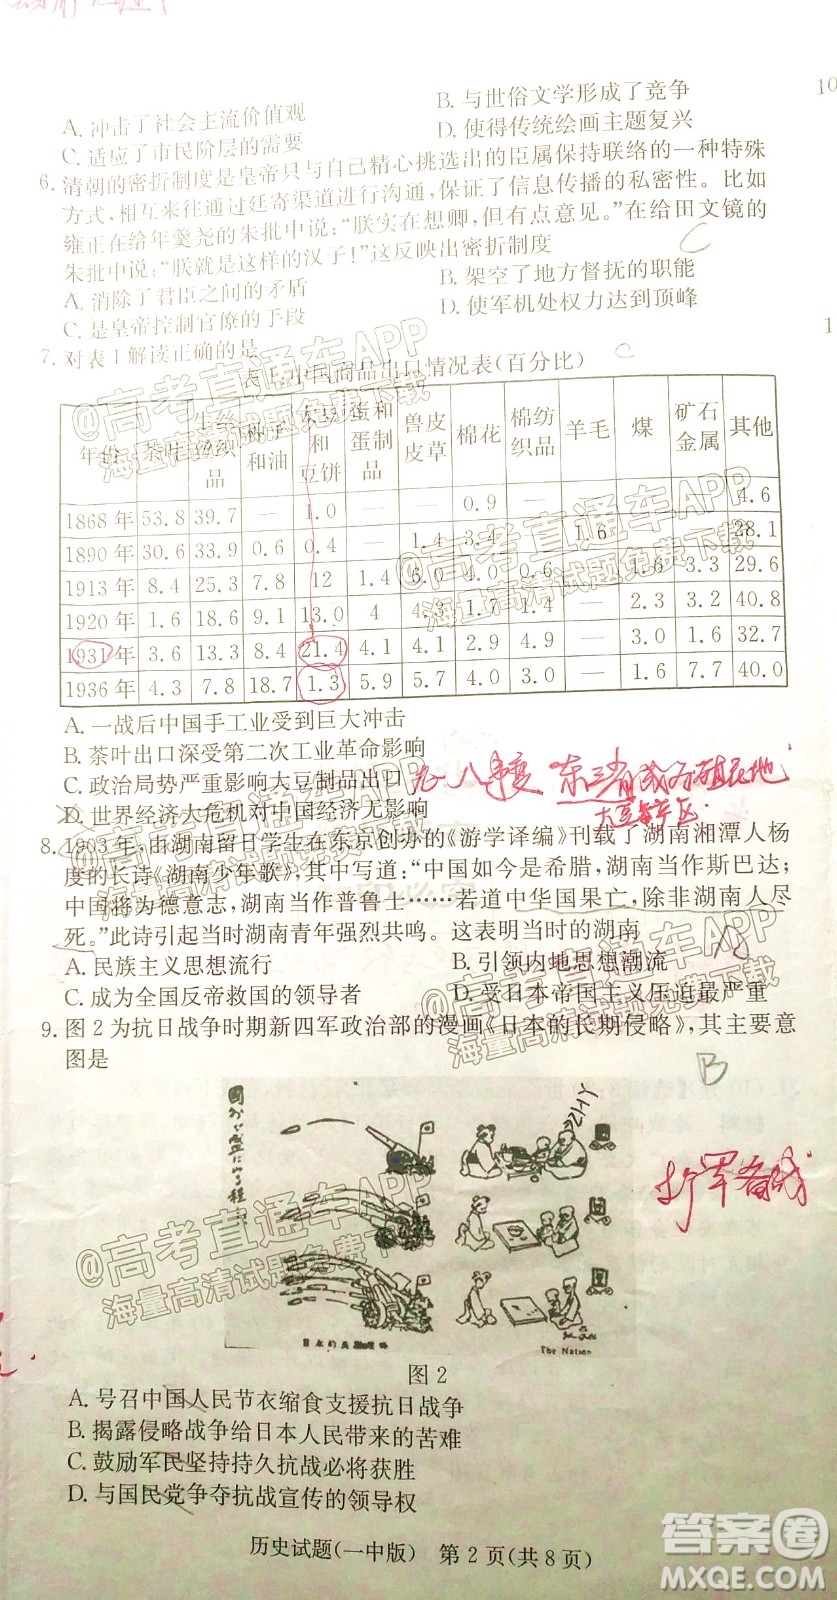 A. 冲击了社会主流价值观
B. 与世俗文学形成了竞争
10
C. 适应了市民阶层的需要
D. 使得传统绘画主题复兴
6. 清朝的密折制度是皇帝只与自己精心挑选出的臣属保持联络的一种特殊
方式,相互来往通过廷寄渠道进行沟通,保证了信息传播的私密性。比如
雍正在给年羹尧的朱批中说:“朕实在想卿,但有点意见。”在给田文镜的
朱批中说:“朕就是这样的汉子!”这反映出密折制度
C
A. 消除了君臣之间的矛盾
B. 架空了地方督抚的职能
C. 是皇帝控制官僚的手段
D. 使军机处权力达到顶峰
1
7. 对表1解读正确的是
C
表1 中国商品出口情况表(百分比)
年份 茶叶 生丝丝织品 和油 大豆和豆饼 蛋和蛋制品 兽皮皮草 棉花 棉纺织品 羊毛 煤 矿石金属 其他
1868年 53.8 39.7 — 1.0 0.9 4.6
1890年 30.6 33.9 0.6 0.4 — 1.4 3.4 1.6 28.1
1913年 8.4 25.3 7.8 12 1.4 6.0 4.0 0.6 — 1.6 3.3 29.6
1920年 1.6 18.6 9.1 13.0 4 4.3 1.7 1.4 — 2.3 3.2 40.8
1931年 3.6 13.3 8.4 21.4 4.1 4.1 2.9 4.9 — 3.0 1.6 32.7
1936年 4.3 7.8 18.7 1.3 5.9 5.7 4.0 3.0 — 1.6 7.7 40.0
A. 一战后中国手工业受到巨大冲击
B. 茶叶出口深受第二次工业革命影响
C. 政治局势严重影响大豆制品出口
九一八事变 东三省成为殖民地
D. 世界经济大危机对中国经济无影响
8. 1903年,由湖南留日学生在东京创办的《游学译编》刊载了湖南湘潭人杨
度的长诗《湖南少年歌》,其中写道:“中国如今是希腊,湖南当作斯巴达;
中国将为德意志,湖南当作普鲁士……若道中华国果亡,除非湖南人尽
死。”此诗引起当时湖南青年强烈共鸣。这表明当时的湖南
A
A. 民族主义思想流行
B. 引领内地思想潮流
C. 成为全国反帝救国的领导者
D. 受日本帝国主义压迫最严重
9. 图2为抗日战争时期新四军政治部的漫画《日本的长期侵略》,其主要意
图是
B
The Nation
图2
A. 号召中国人民节衣缩食支援抗日战争
B. 揭露侵略战争给日本人民带来的苦难
C. 鼓励军民坚持持久抗战必将获胜
D. 与国民党争夺抗战宣传的领导权
历史试题(一中版) 第2页(共8页)
@高考直通车APP
海量高清试题免费下载
@高考直通车APP
海量高清试题免费下载
@高考直通车APP
海量高清试题免费下载
@高考直通车APP
海量高清试题免费下载
@高考直通车APP
海量高清试题免费下载
答案圈
MXQE.COM